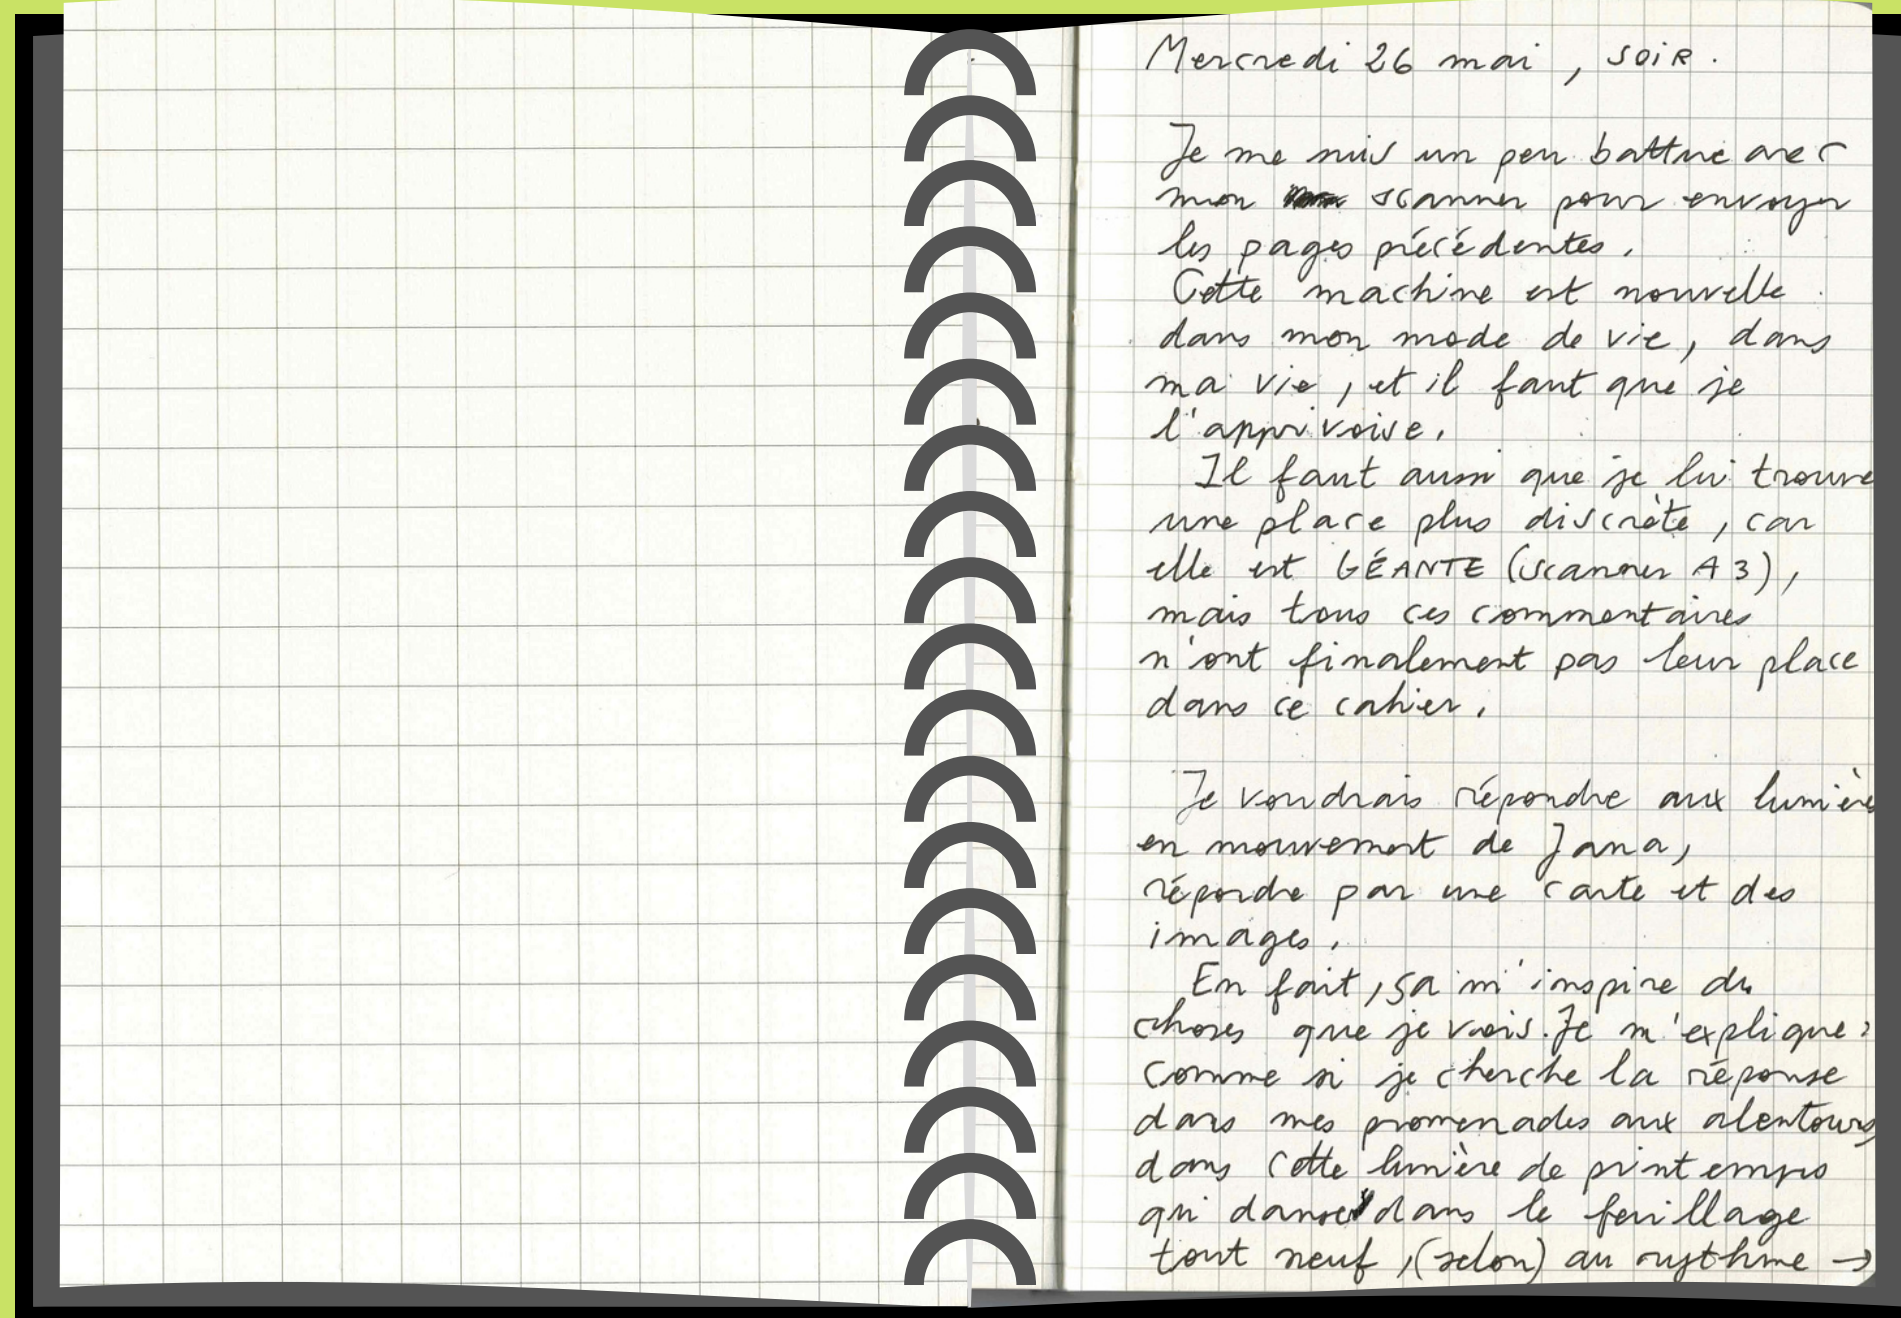 Mercredi 26 mai, soir.
Je me suis un peu battue avec
mon scanner pour envoyer
les pages précédentes.
Cette machine est nouvelle
dans mon mode de vie, dans
ma vie, et il faut que je
l'apprivoise.
Il faut aussi que je lui trouve
une place plus discrète, car
elle est GÉANTE (scanner A3),
mais tous ces commentaires
n'ont finalement pas leur place
dans ce cahier.
Je voudrais répondre aux lumières
en mouvement de Jana,
répondre par une carte et des
images.
En fait, ça m'inspire du
choses que je vois. Je m'explique :
comme si je cherche la réponse
dans mes promenades aux alentours,
dans cette lumière de printemps
qui danse dans le feuillage
tout neuf, (selon) au rythme →